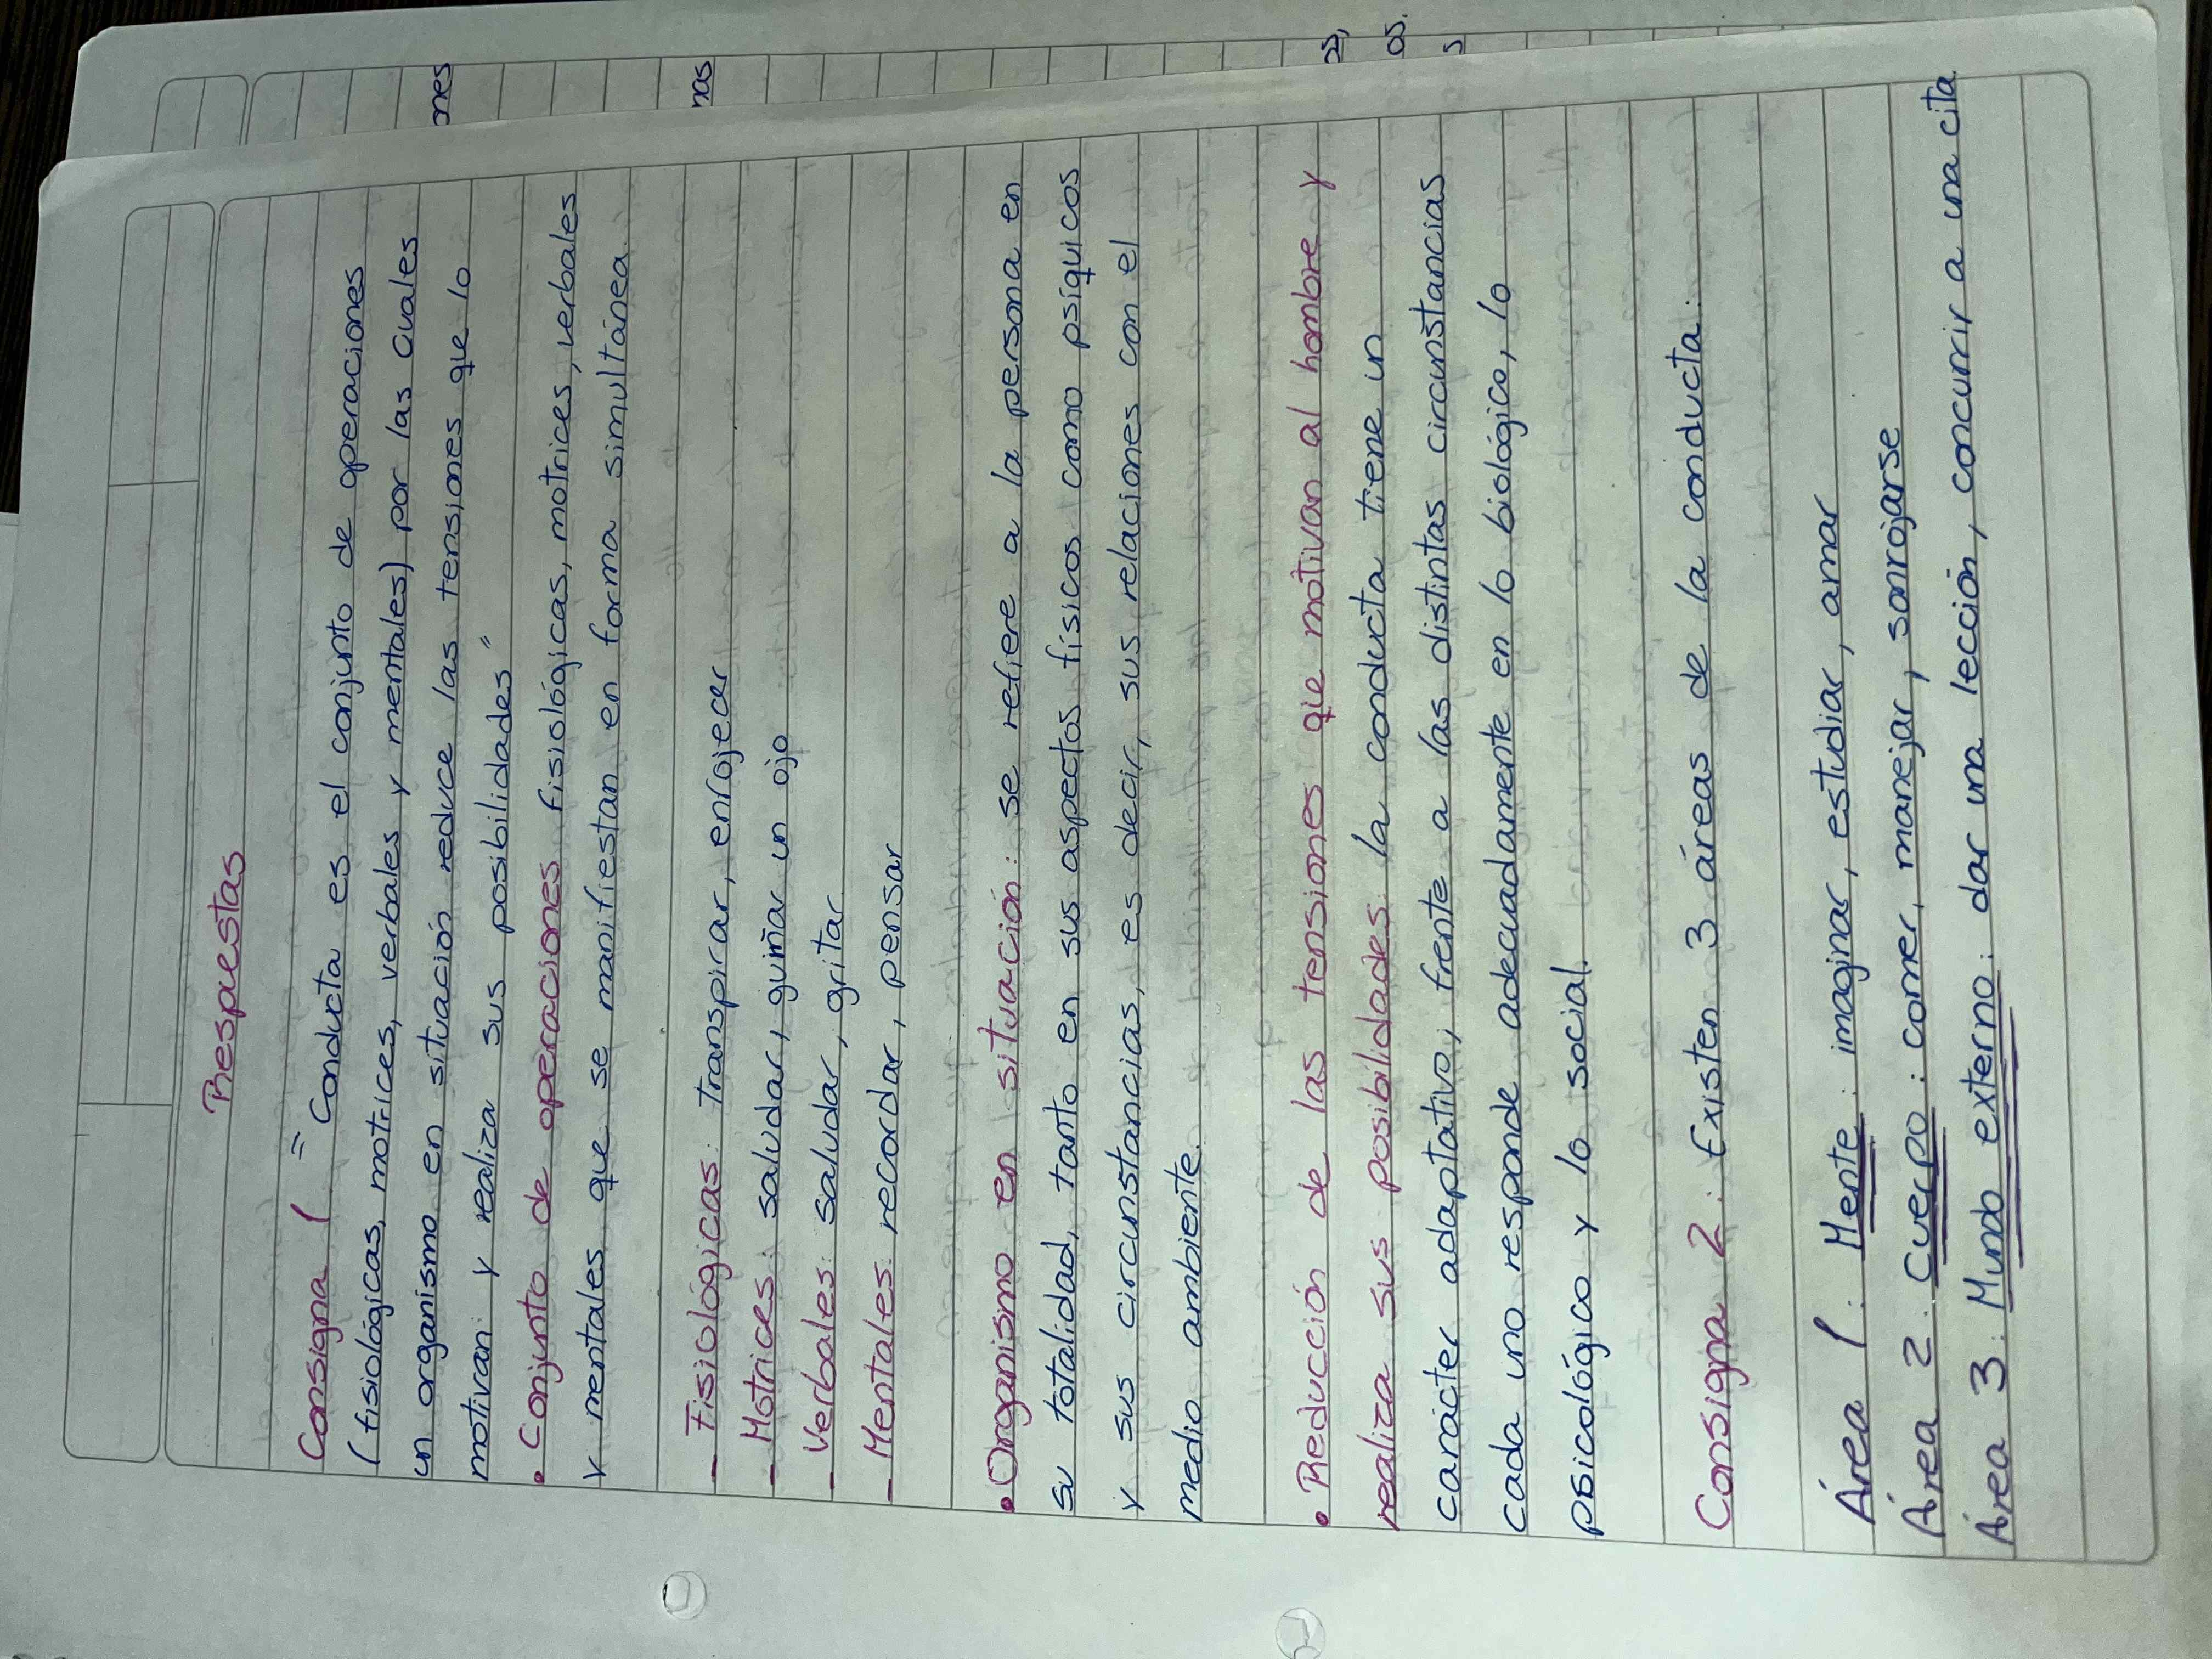 Respuestas
Consigna 1 " Conducta es el conjunto de operaciones
(fisiológicas, motrices, verbales y mentales) por las cuales
un organismo en situación reduce las tensiones que lo
motivan y realiza sus posibilidades"
• Conjunto de operaciones fisiológicas, motrices, verbales
y mentales que se manifiestan en forma simultánea.
- Fisiológicas: transpirar, enrojecer
- Motrices: saludar, guiñar un ojo
- Verbales: saludar, gritar
- Mentales: recordar, pensar
• Organismo en situación: se refiere a la persona en
su totalidad, tanto en sus aspectos físicos como psíquicos
y sus circunstancias, es decir, sus relaciones con el
medio ambiente.
• Reducción de las tensiones que motivan al hombre y
realiza sus posibilidades: la conducta tiene un
carácter adaptativo, frente a las distintas circunstancias
cada uno responde adecuadamente en lo biológico, lo
psicológico y lo social.
Consigna 2: Existen 3 áreas de la conducta:
Área 1: Mente: imaginar, estudiar, amar
Área 2: Cuerpo: comer, manejar, sonrojarse
Área 3: Mundo externo: dar una lección, concurrir a una cita.
nes
nas
os,
os.
s